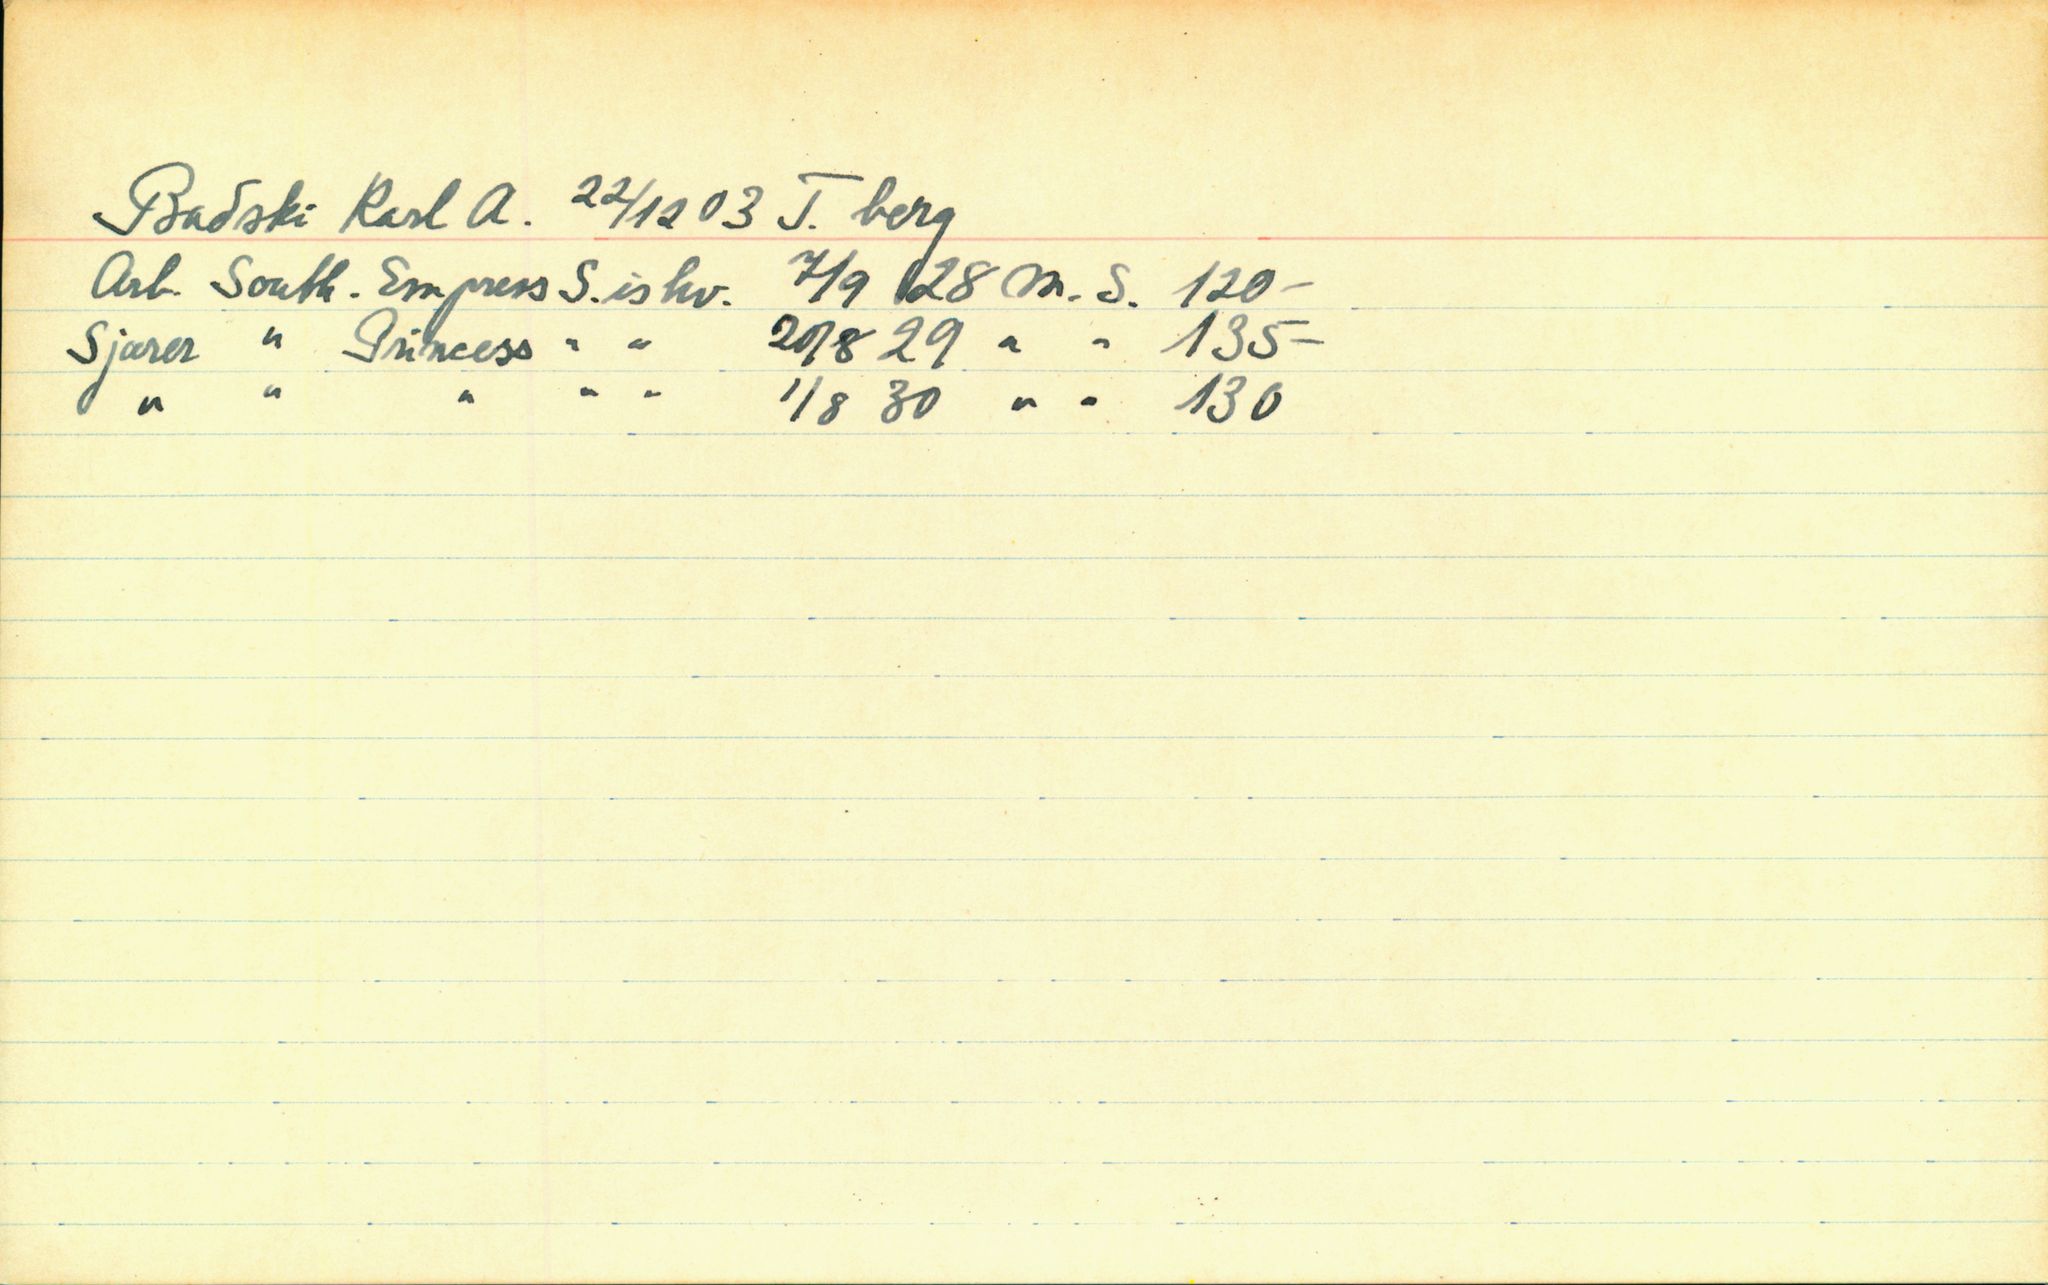 Badski Karl A. 22/12 03 T. berg
Arb. South. Empress S. ishv. 7/9 28 M. S. 120-
Sjører " Princess " " 20/8 29 " " 135-
" " " " " 1/8 30 " " 130